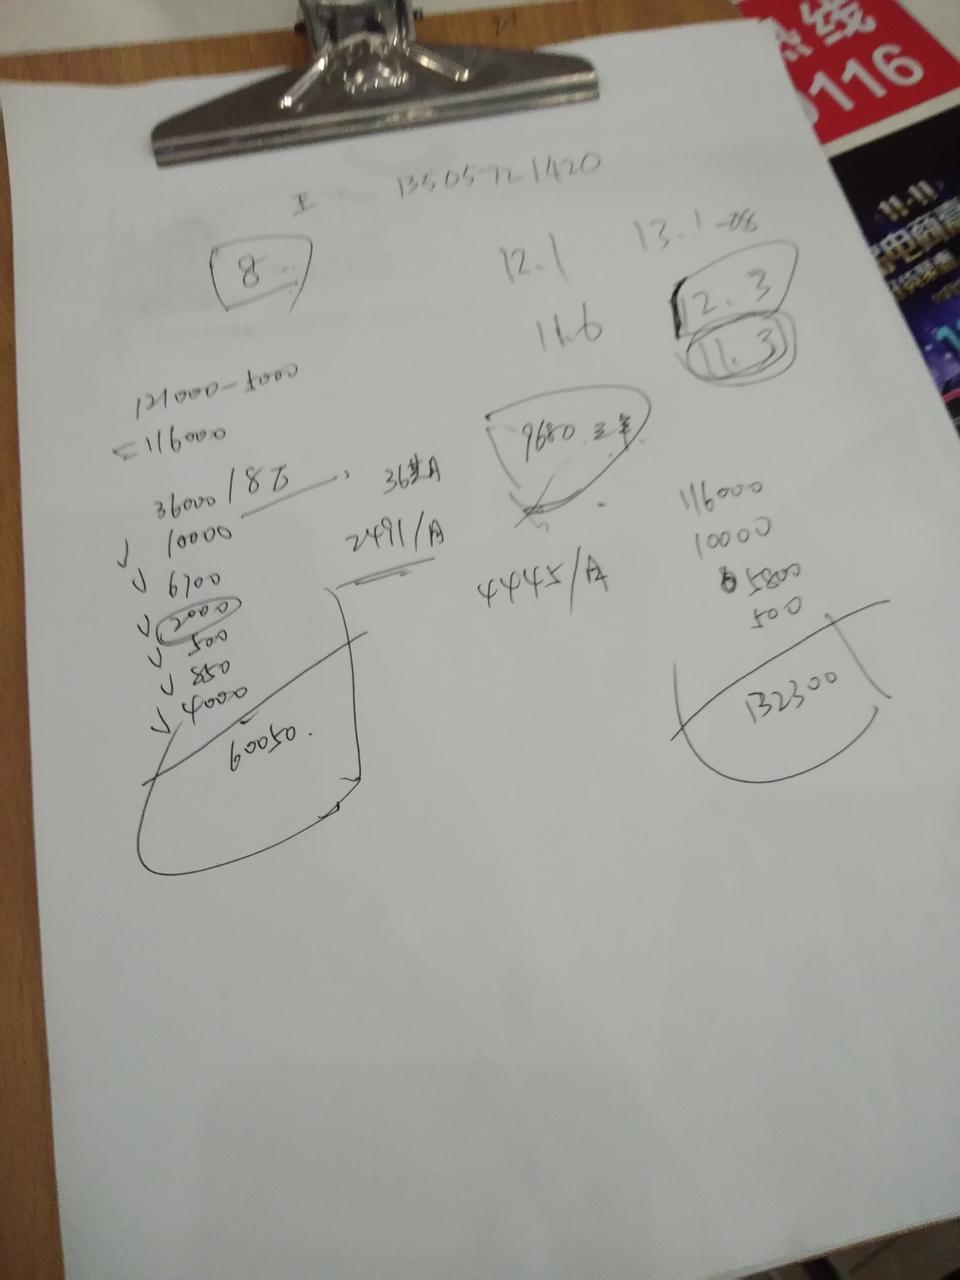 热线
0116
11.11
电商嘉
王 13505721420
8
12.1 13.1
12.3
11.6
11.3
121000-5000
=116000
9680 三年
36000/8万
36期
10000
2491/月
6700
2000
500
850
4000
60050
4445/月
116000
10000
5800
500
132300